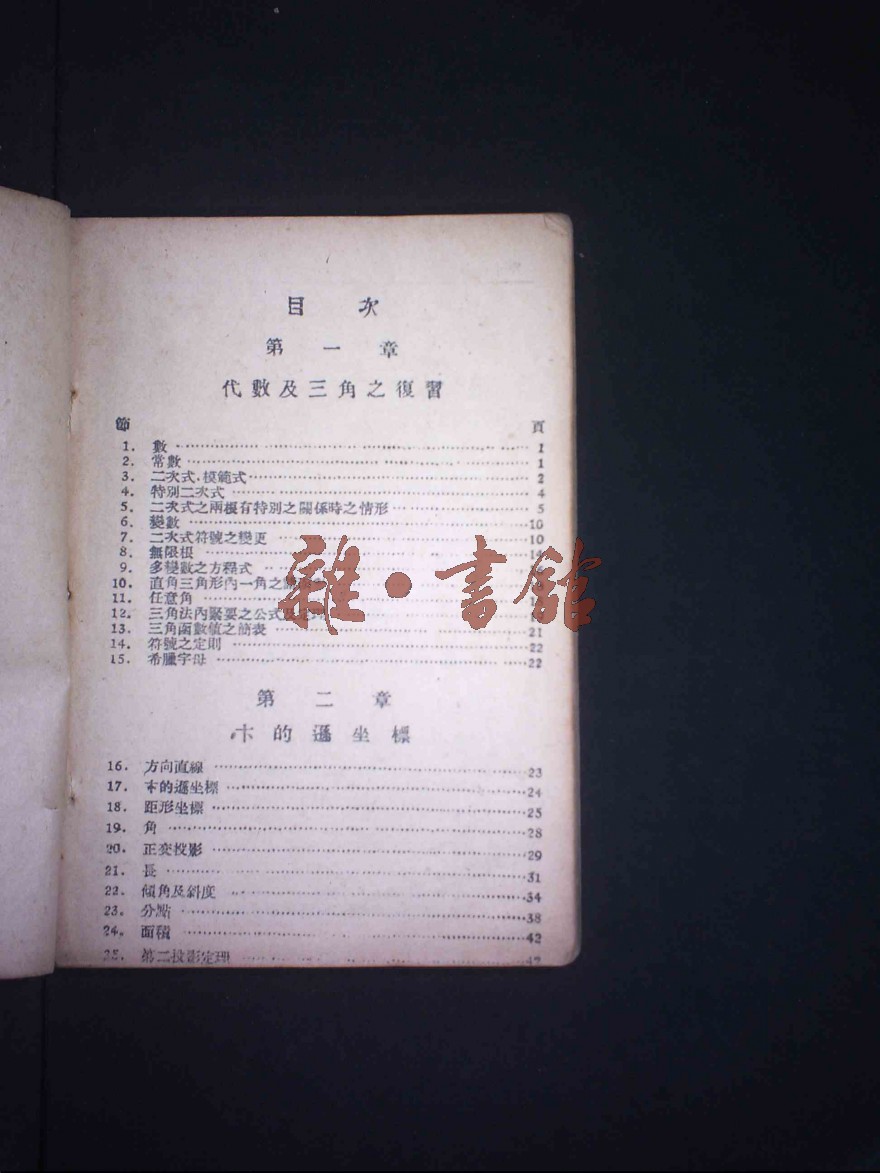 目 次
第 一 章
代數及三角之復習
節 頁
1. 數 1
2. 常數 1
3. 二次式.模範式 2
4. 特別二次式 4
5. 二次式之兩根有特別之關係時之情形 5
6. 變數 10
7. 二次式符號之變更 10
8. 無限根 14
9. 多變數之方程式
10. 直角三角形內一角之
11. 任意角
12. 三角法內緊要之公式及定理
13. 三角函數值之簡表 21
14. 符號之定則 22
15. 希臘字母 22
雜·書館
第 二 章
卞的遜坐標
16. 方向直線 23
17. 卞的遜坐標 24
18. 距形坐標 25
19. 角 28
20. 正交投影 29
21. 長 31
22. 傾角及斜度 34
23. 分點 38
24. 面積 42
25. 第二投影定理